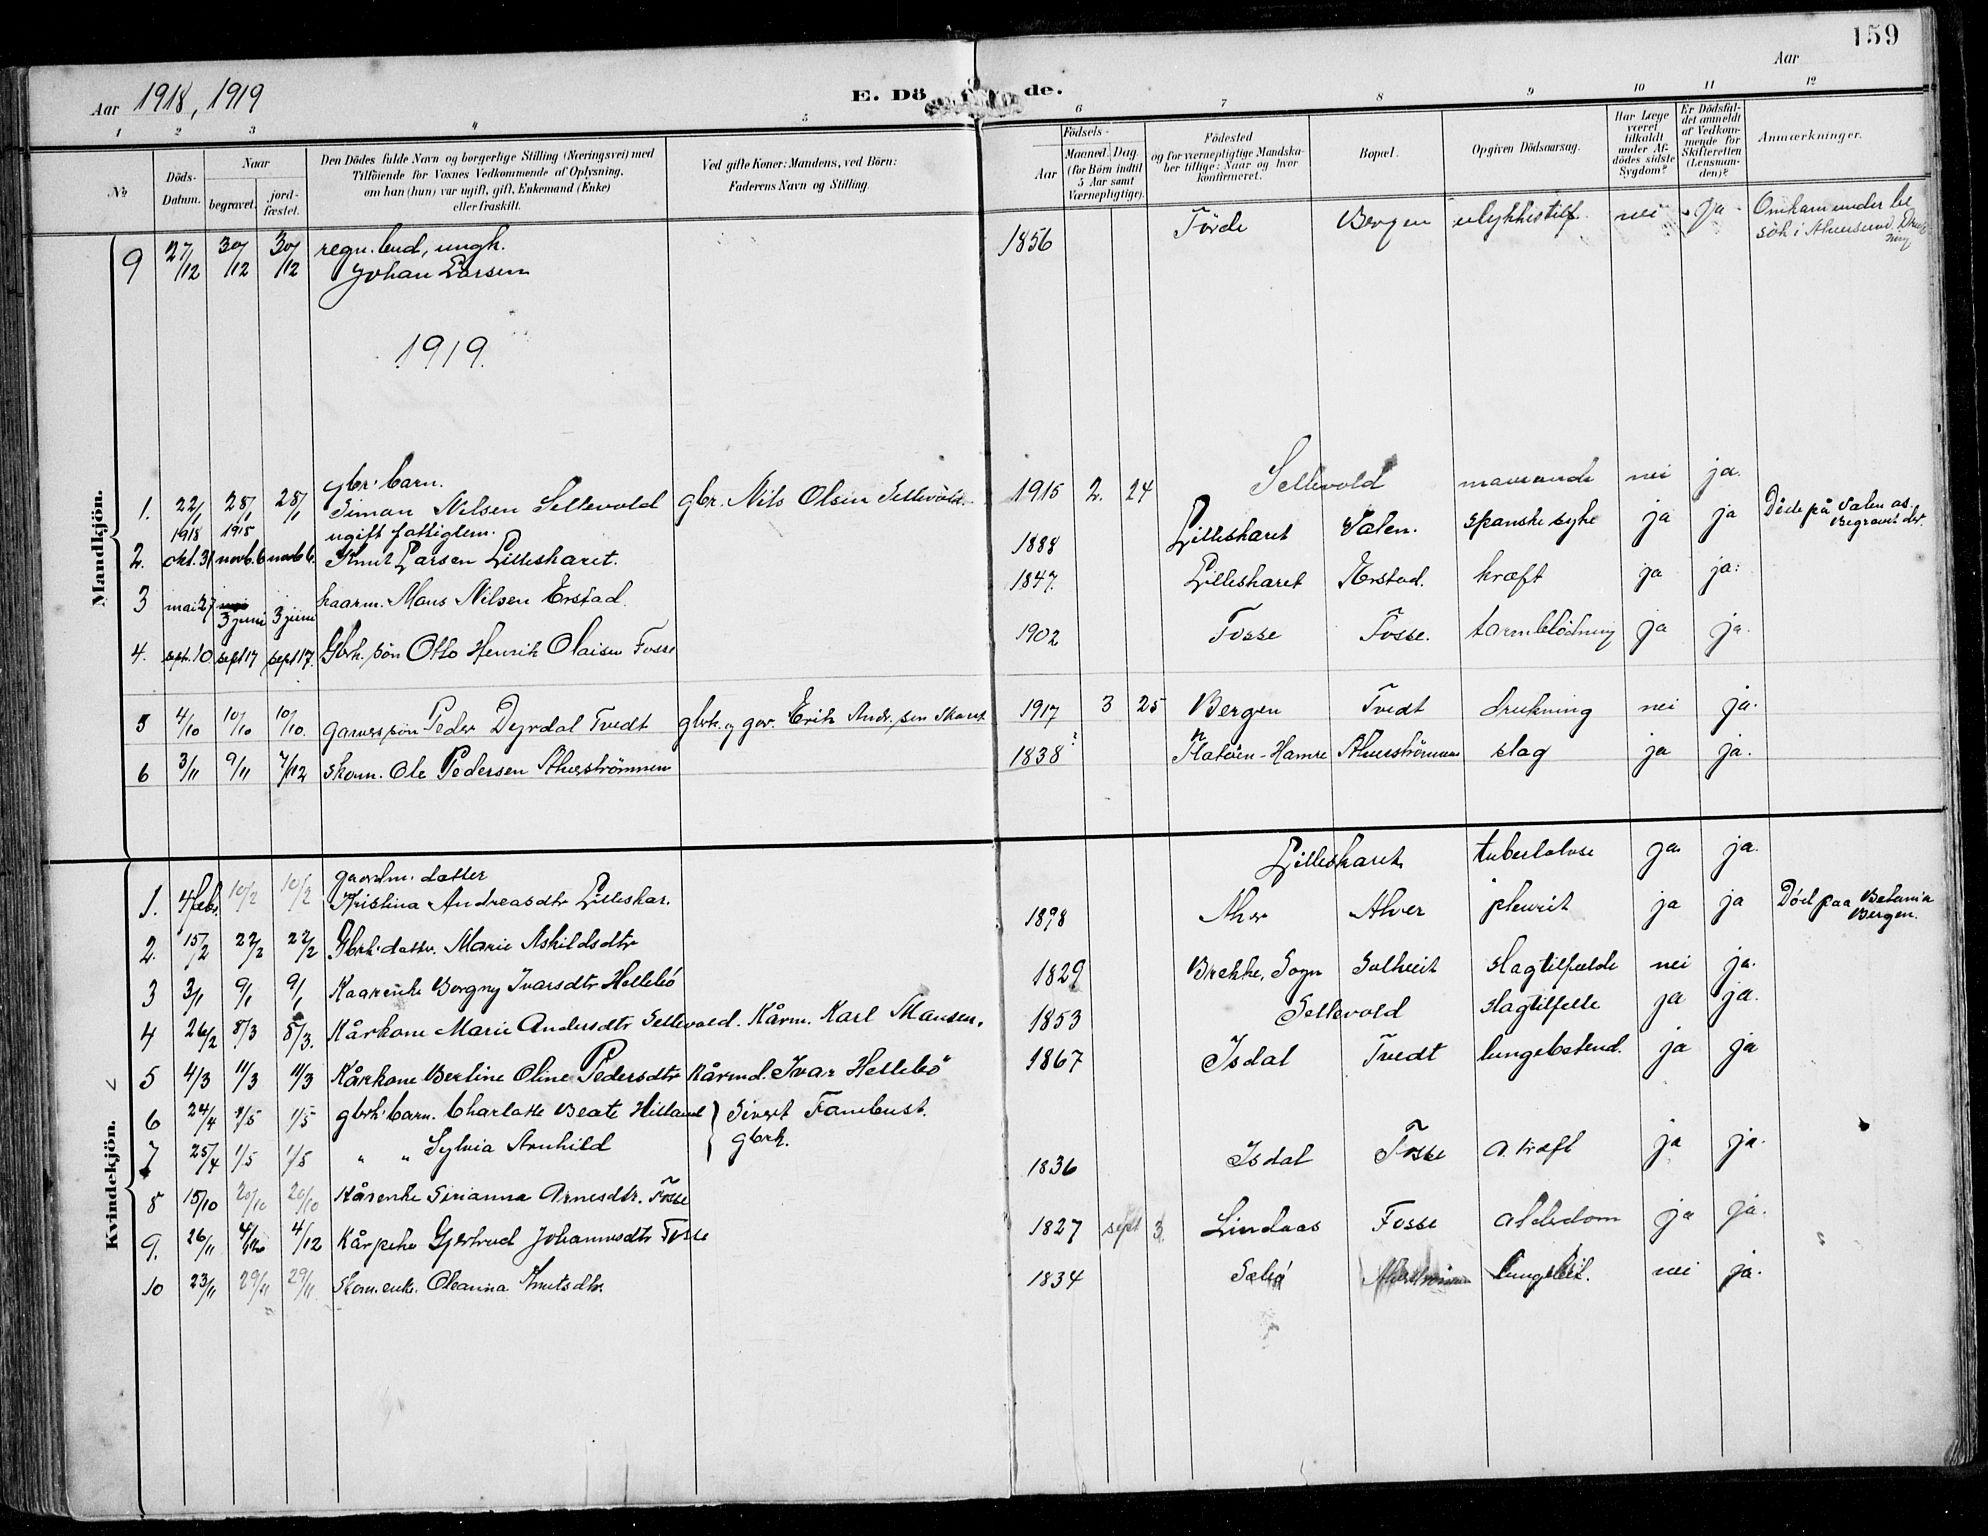 159
Aar 1918, 1919
E. Dö de.
Aar
1 2 3 4 5 6 7 8 9 10 11 12
No
Döds-Datum.
Naar
begravet.
jord-fæstet.
Den Dödes fulde Navn og borgerlige Stilling (Næringsvei) med
Tilföiende for Voxnes Vedkommende af Oplysning,
om han (hun) var ugift, gift, Enkemand (Enke)
eller fraskilt.
Ved gifte Koner: Mandens, ved Börn:
Faderens Navn og Stilling.
Födsels-
Aar
Maaned. Dag.
(for Börn indtil
5 Aar samt
Værnepligtige).
Födested
og for værnepligtige Mandska-
ber tillige: Naar og hvor
konfirmeret.
Bopæl.
Opgiven Dödsaarsag.
Har Læge
været
tilkaldt
under Af-
dödes sidste
Sygdom?
Er Dödsfal-
det anmeldt
af Vedkom-
mende for
Skifteretten
(Lensman-
den)?
Anmærkninger.
Mandkjön.
9 27/12 30/12 30/12 regn. bud, ungk. Johan Larsen 1856 Förde Bergen ulykkestilf. nei ja Omkom under be
søk i Alversund. Drukning
1919.
1. 22/1 28/1 28/1 gbr. barn. Simon Nilsen Sellevold gbr. Nils Olsen Sellevold 1915 2. 24 Sellevold nei ja.
2. 1918 okt. 31 1918 novb. 6 novb. 6. ugift fattiglem. Knut Larsen Lilleskaret. 1888 Lilleskaret Valen. spanske syke ja ja Döde på Valen as. Begravet der.
3 mai 27 3 juni 3 juni kaarm. Mons Nilsen Erstad. 1847. Lilleskaret Erstad. kræft ja ja.
4. sept. 10 sept 17 sept 17. Gbrk. sön Otto Henrik Olaisen Fosse 1902 Fosse Fosse. tarmblödning ja ja.
5 4/10 10/10 10/10. garverssön Peder Dyrdal Tvedt gbrk. og gar. Erik Andr. sen 1917 3 25 Bergen Tvedt drukning nei ja.
6 3/11 9/11 7/12 skom. Ole Pedersen Alverströmmen 1838? Flatöen-Hamre Alverströmmen slag ja ja.
Kvindekjön.
1. 4 febr. 10/2 10/2 gaardm. datter Kristina Andreasdtr Lilleskar. 1898 Lilleskaret tuberkulose ja ja.
2. 15/2 22/2 22/2 Gbrk. datter. Marie Askildsdtr Alver Alver pleurit ja ja Död paa Betania Bergen.
3 3/1 9/1 9/1 Kaarenke Borgny Ivarsdtr Hellebö 1829 Brekke, Sogn Solheit slagtilfælde nei ja.
4 26/2 8/3 8/3. Kårkone Marie Andersdtr Sellevold. Kårm. Karl Monsen. 1853 Sellevold slagtilfelle ja ja.
5 4/3 11/3 11/3 Kårkone Berline Oline Pedersdtr Kårmd. Ivar Hellebö 1867 Isdal Tvedt lungebetend. ja ja
6 24/4 1/5 1/5 gbrk. barn. Charlotte Beate Hilland } Sivert Fambust.
7 25/4 1/5 1/5 " " Sylvia Arnhild gbrk.
8 15/10 20/10 20/10 Kårenke Serianna Arnesdtr. Fosse 1836 Isdal Fosse kræft ja ja.
9. 26/11 4/12 4/12 Kårpike Gjertrud Johannesdtr Fosse 1827 sept 3. Lindaas Fosse alderdom ja ja.
10 23/11 29/11 29/11 Skom. enke. Oleanna Knutsdtr. 1834 Sæbö Alverströmmen nei ja.